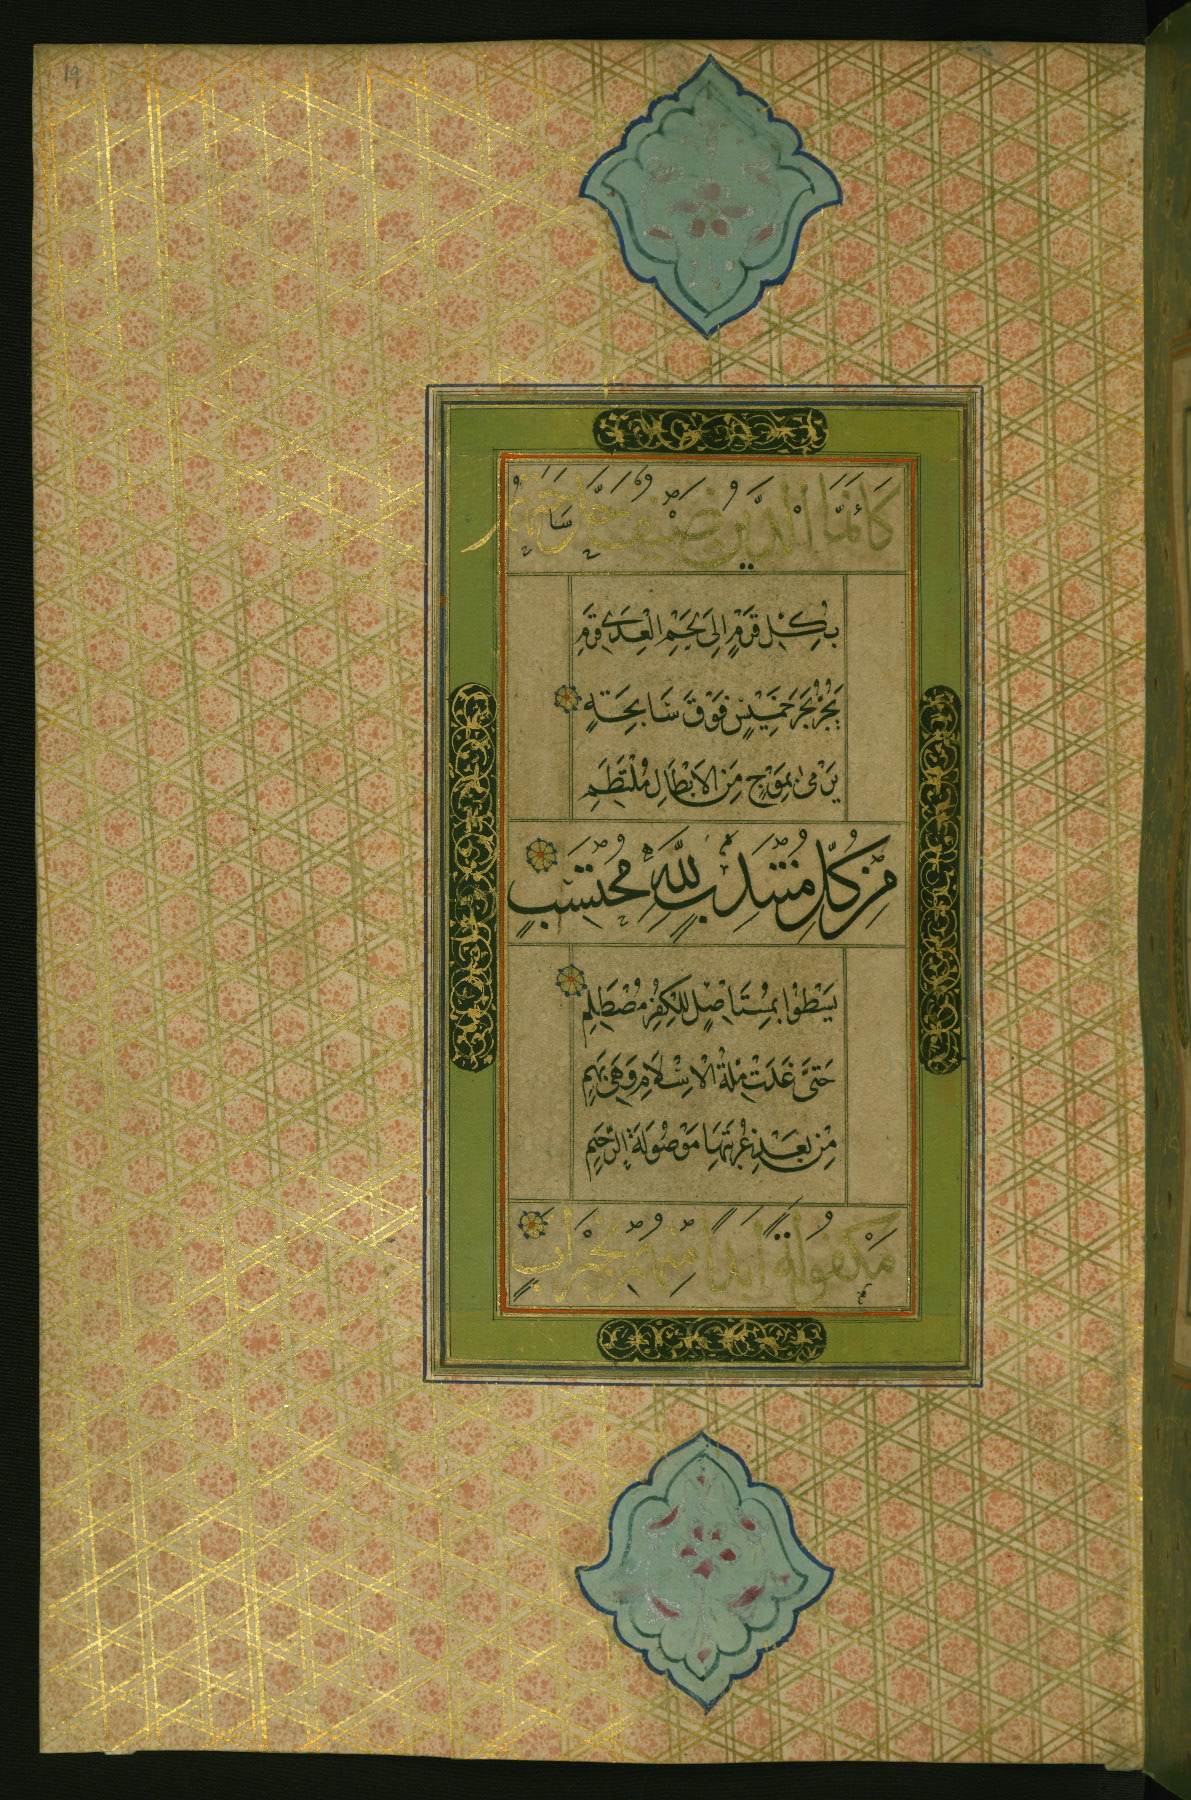 19
كَانَّمَا الدِّينُ ضَيْفٌ حَلَّ سَاحَتَهُمْ
بِكُلِّ قَرْمٍ اِلَى لَحْمِ الْعِدَى قَرِمِ
يَجُرُّ بَحْرَ خَمِيسٍ فَوْقَ سَابِحَةٍ
يَرْمِى بِمَوْجٍ مِنَ الاَبْطَالِ مُلْتَطِمِ
مِنْ كُلِّ مُنْتَدِبٍ لِلّٰهِ مُحْتَسِبٍ
يَسْطُوا بِمُسْتَاصِلٍ لِلْكُفْرِ مُصْطَلِمِ
حَتَّى غَدَتْ مِلَّةُ الْاِسْلَامِ وَهِىَ بِهِمِ
مِنْ بَعْدِ غُرْبَتِهَا مَوْصُولَةَ الرَّحِمِ
مَكْفُولَةً اَبَدًا مِنْهُمْ بِخَيْرِ اَبٍ